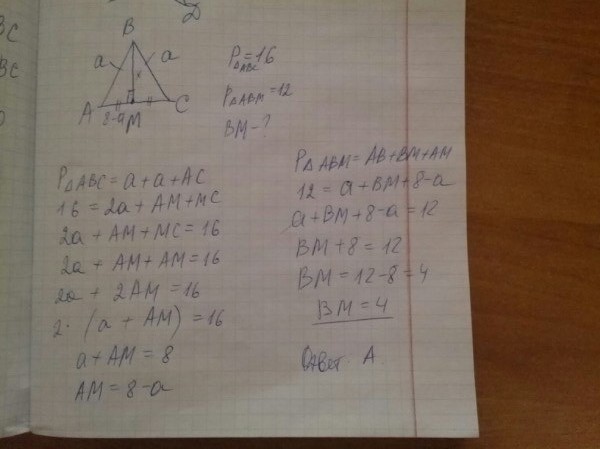 D
ВС
ВС
B
a
a
x
A
C
8-a
M
P△ABC=16
P△ABM=12
BM-?
P△ABC=a+a+AC
16=2a+AM+MC
2a+AM+MC=16
2a+AM+AM=16
2a+2AM=16
2·(a+AM)=16
a+AM=8
AM=8-a
P△ABM=AB+BM+AM
12=a+BM+8-a
a+BM+8-a=12
BM+8=12
BM=12-8=4
BM=4
Ответ: А.